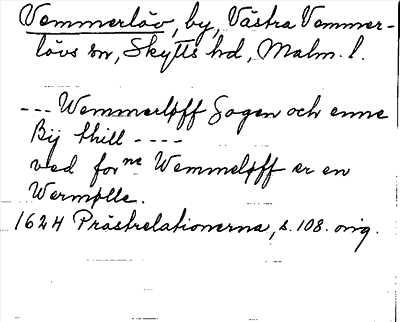 Vemmerlöv, by, Västra Vemmer-
lövs sn, Skytts hd, Malm. l.
--- Wemmerløff Sogen och enne
Bÿ thill ----
ved for ne Wemmeløff er en
Wermølle.
1624 Prästrelationerna, s. 108. orig.